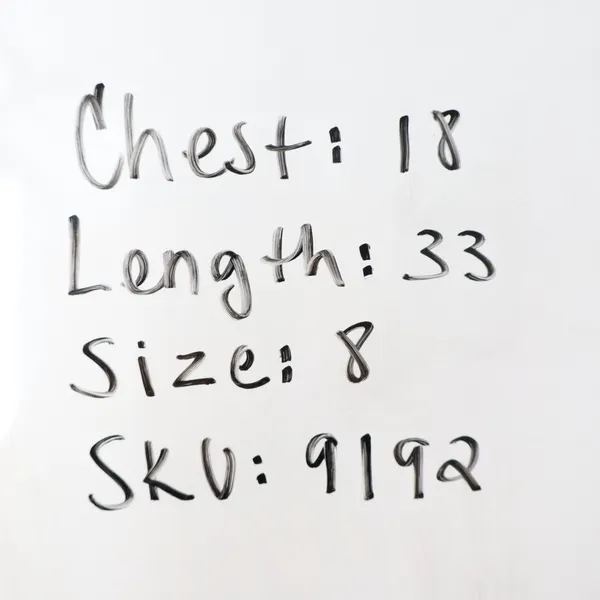 Chest: 18
Length: 33
Size: 8
SKU: 9192